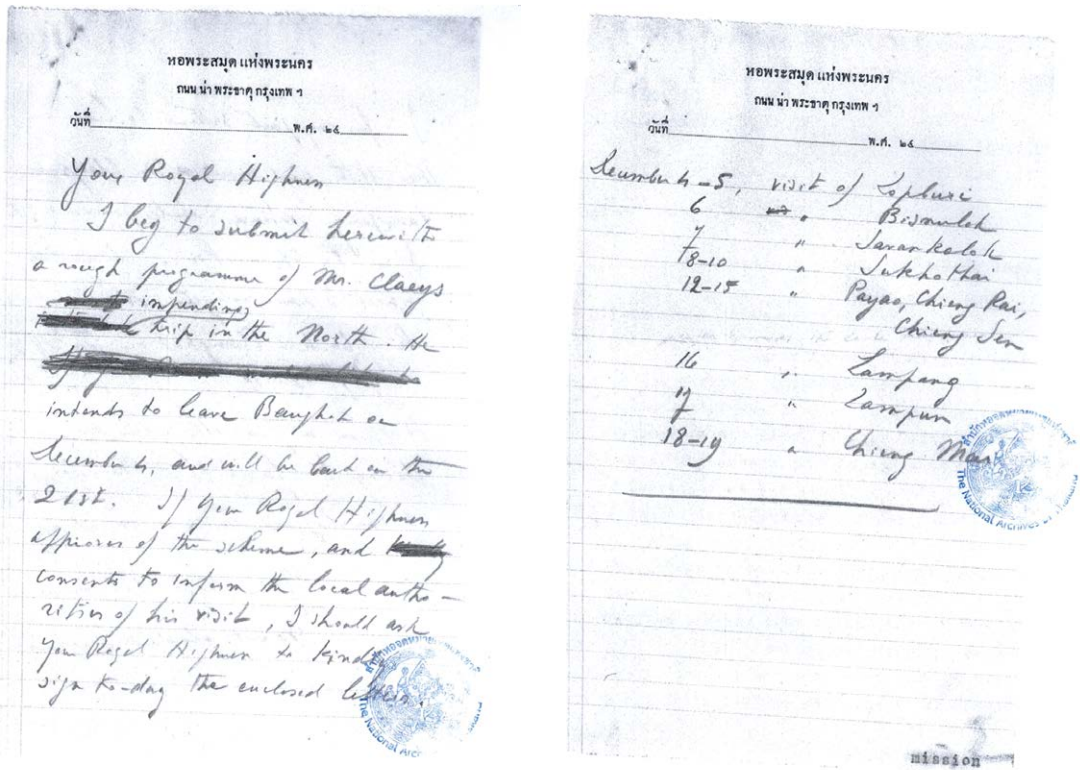 หอพระสมุด แห่งพระนคร
ถนน น่า พระธาตุ กรุงเทพ ฯ
วันที่ พ.ศ. ๒๔
Your Royal Highness
I beg to submit herewith
a rough programme of Mr. Claeys
impending
trip in the North. He
intends to leave Bangkok on
December 4, and will be back on the
21st. If Your Royal Highness
approves of the scheme, and
consents to inform the local autho-
rities of his visit, I should ask
Your Royal Highness to kindly
sign to-day the enclosed letters.
The National Archives of Thailand
หอพระสมุด แห่งพระนคร
ถนน น่า พระธาตุ กรุงเทพ ฯ
วันที่ พ.ศ. ๒๔
December 4-5, visit of Lopburi
6 " Bisnulok
7 " Savankalok
8-10 " Sukhothai
12-15 " Payao, Chieng Rai,
Chieng Sen
16 " Lampang
17 " Lampun
18-19 " Chieng Mai
The National Archives of Thailand
mission